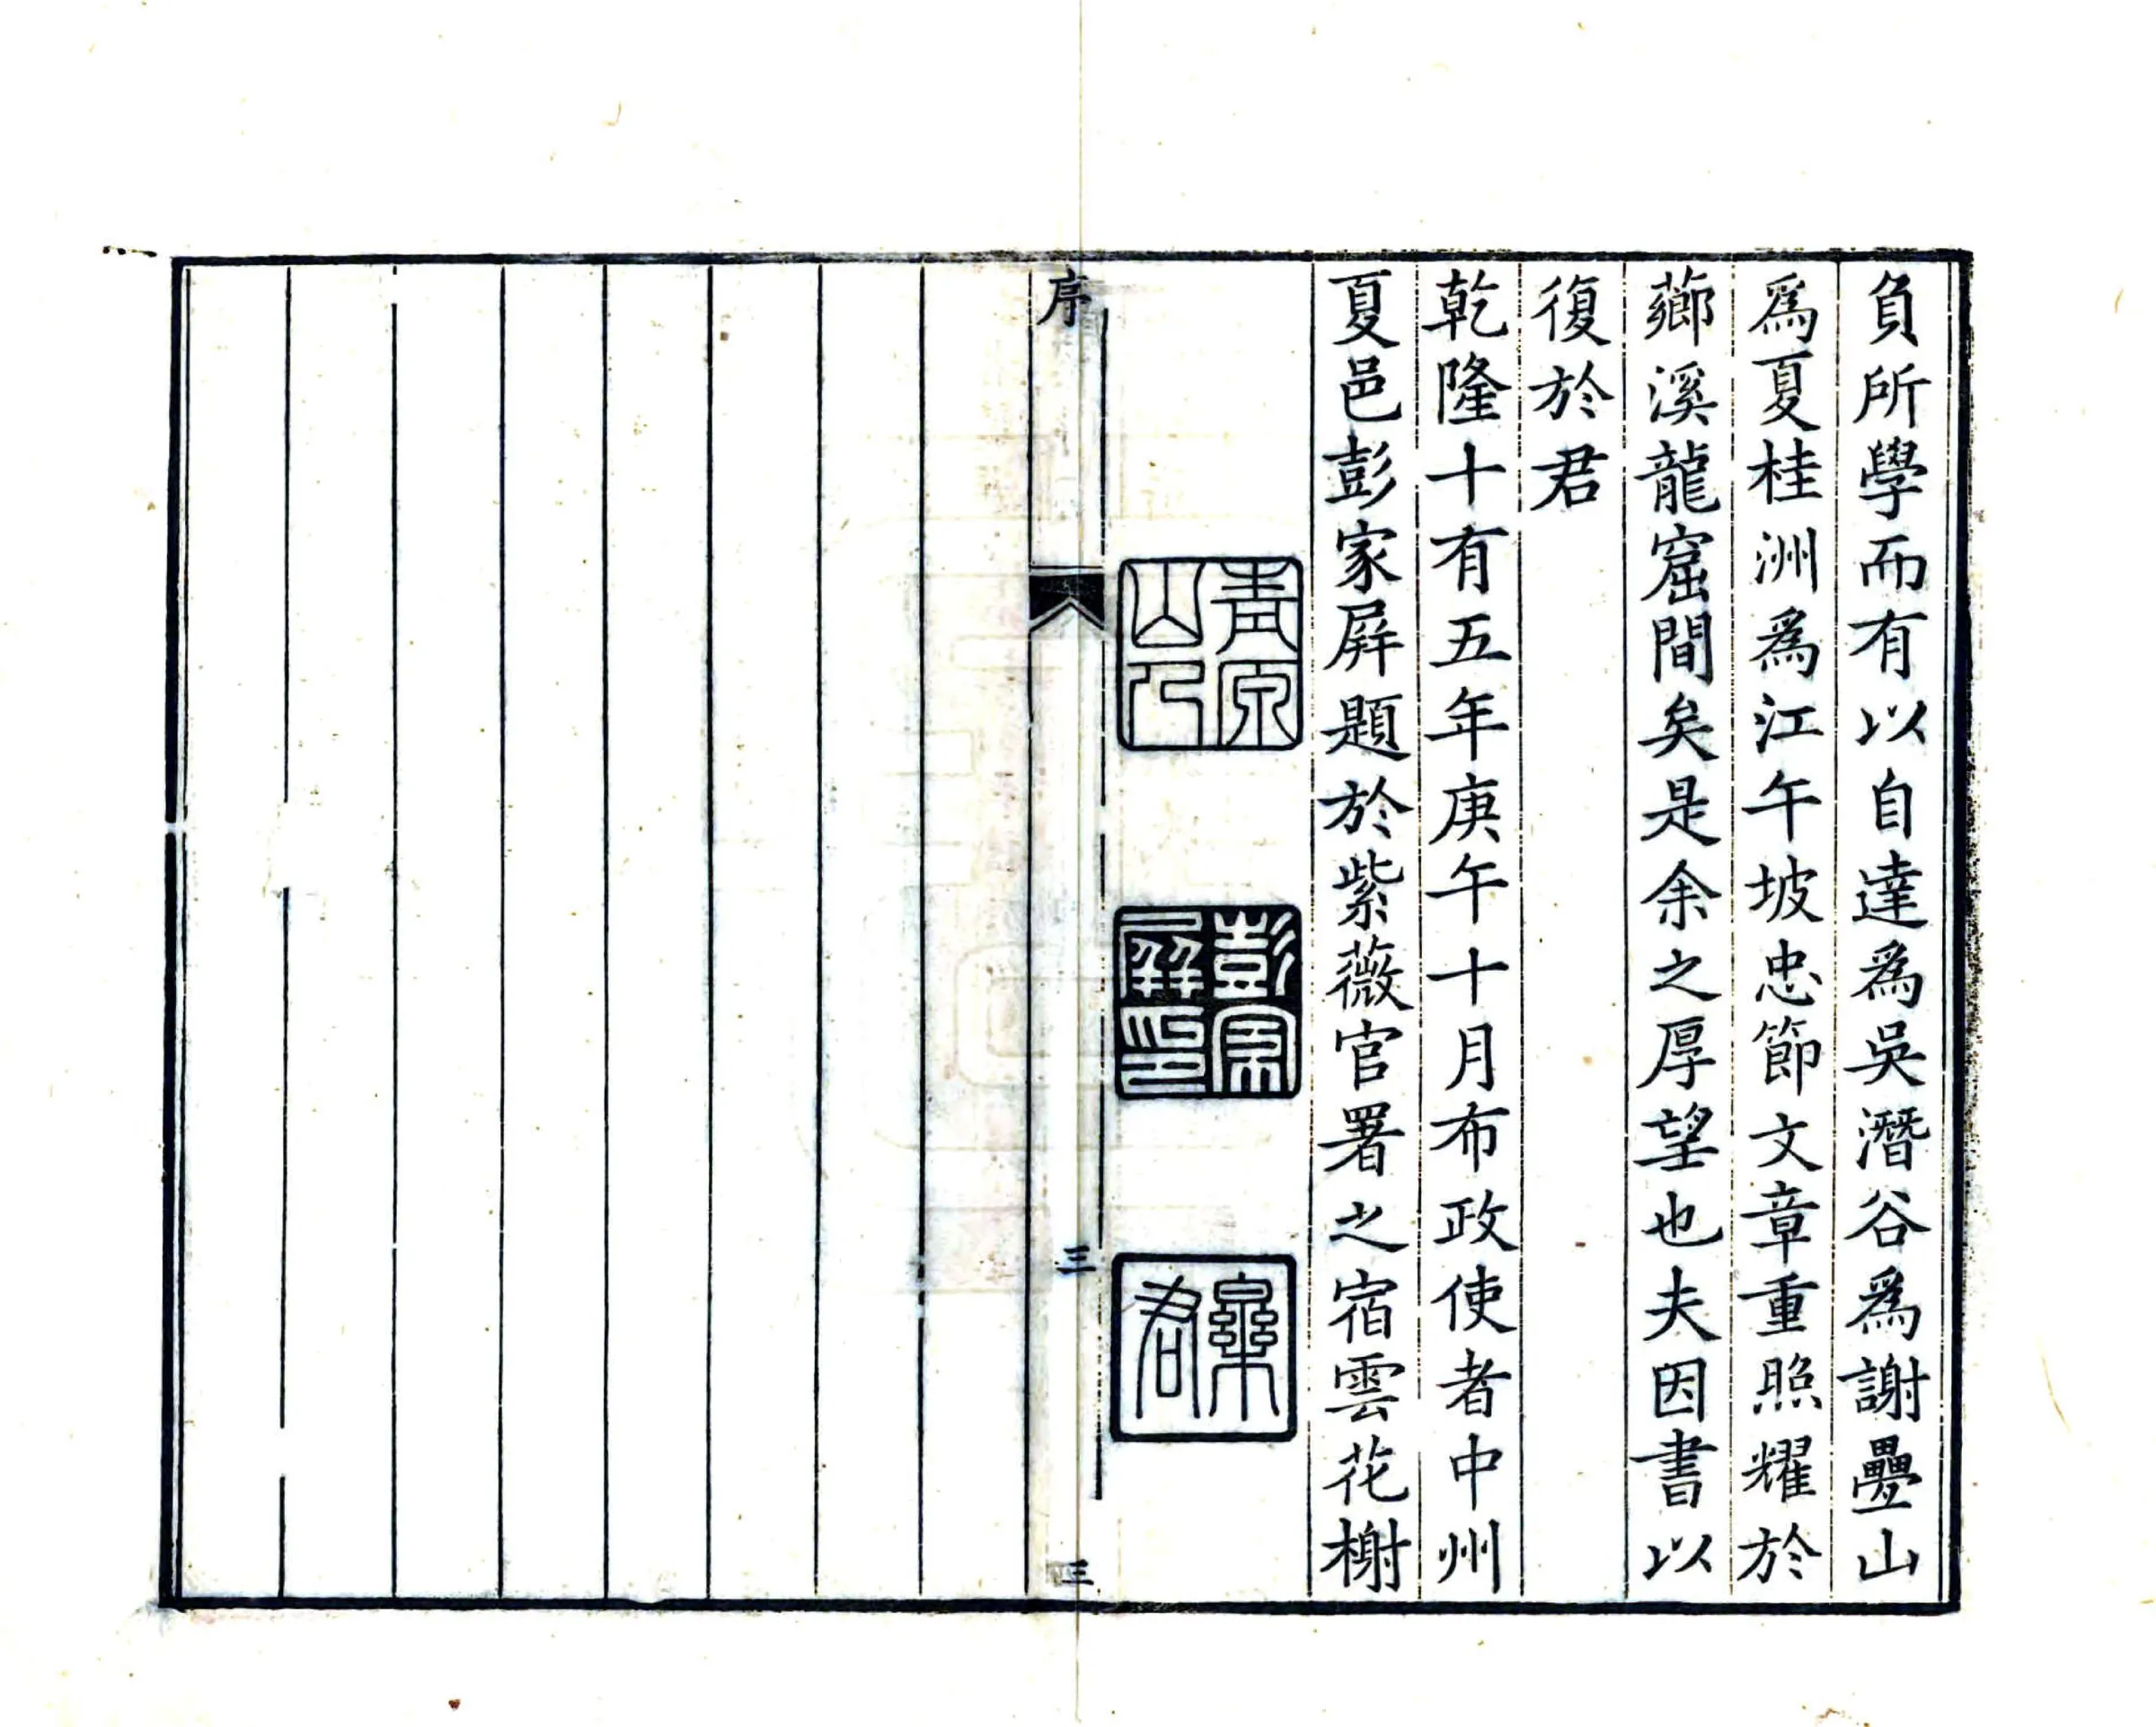 負所學而有以自達爲吳潛谷爲謝疊山
爲夏桂洲爲江午坡忠節文章重照耀於
薌溪龍窟間矣是余之厚望也夫因書以
復於君
乾隆十有五年庚午十月布政使者中州
夏邑彭家屏題於紫薇官署之宿雲花榭
青原山人
彭家屏印
樂君
序
三
三